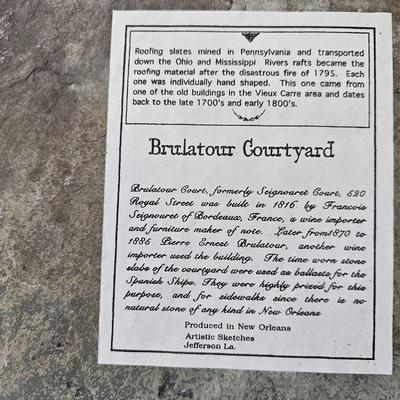 Roofing slates mined in Pennsylvania and transported
down the Ohio and Mississippi Rivers rafts became the
roofing material after the disastrous fire of 1795. Each
one was individually hand shaped. This one came from
one of the old buildings in the Vieux Carre area and dates
back to the late 1700's and early 1800's.
Brulatour Courtyard
Brulatour Court, formerly Seignouret Court, 520
Royal Street was built in 1816 by Francois
Seignouret of Bordeaux, France, a wine importer
and furniture maker of note. Later from 1870 to
1886 Pierre Ernest Brulatour, another wine
importer used the building. The time worn stone
slabs of the courtyard were used as ballasts for the
Spanish Ships. They were highly prized for this
purpose, and for sidewalks since there is no
natural stone of any kind in New Orleans
Produced in New Orleans
Artistic Sketches
Jefferson La.